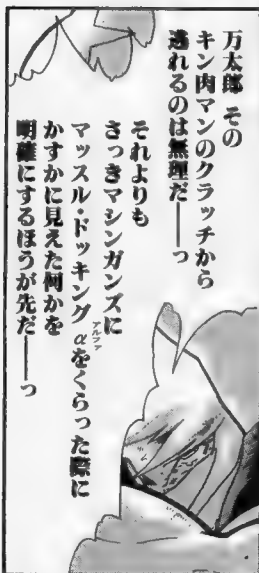 万太郎 その
キン肉マンのクラッチから
逃れるのは無理だ――っ
それよりも
さっきマシンガンズに
マッスル・ドッキングαをくらった際に
アルファ
かすかに見えた何かを
明確にするほうが先だ――っ